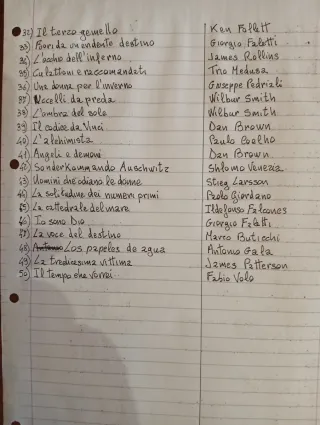 32) Il terzo gemello Ken Follett
33) Fuori da un evidente destino Giorgio Faletti
34) L'occhio dell'inferno James Rollins
35) Culattoni e raccomandati Trio Medusa
36) Una donna per l'inverno Giuseppe Pedriali
37) Uccelli da preda Wilbur Smith
38) L'ombra del sole Wilbur Smith
39) Il codice da Vinci Dan Brown
40) L'alchimista Paulo Coelho
41) Angeli e demoni Dan Brown
42) Sonderkommando Auschwitz Shlomo Venezia
43) Uomini che odiano le donne Stieg Larsson
44) La solitudine dei numeri primi Paolo Giordano
45) La cattedrale del mare Ildefonso Falcones
46) Io sono Dio Giorgio Faletti
47) La voce del destino Marco Buticchi
48) Los papeles de agua Antonio Gala
49) La tredicesima vittima James Patterson
50) Il tempo che vorrei Fabio Volo